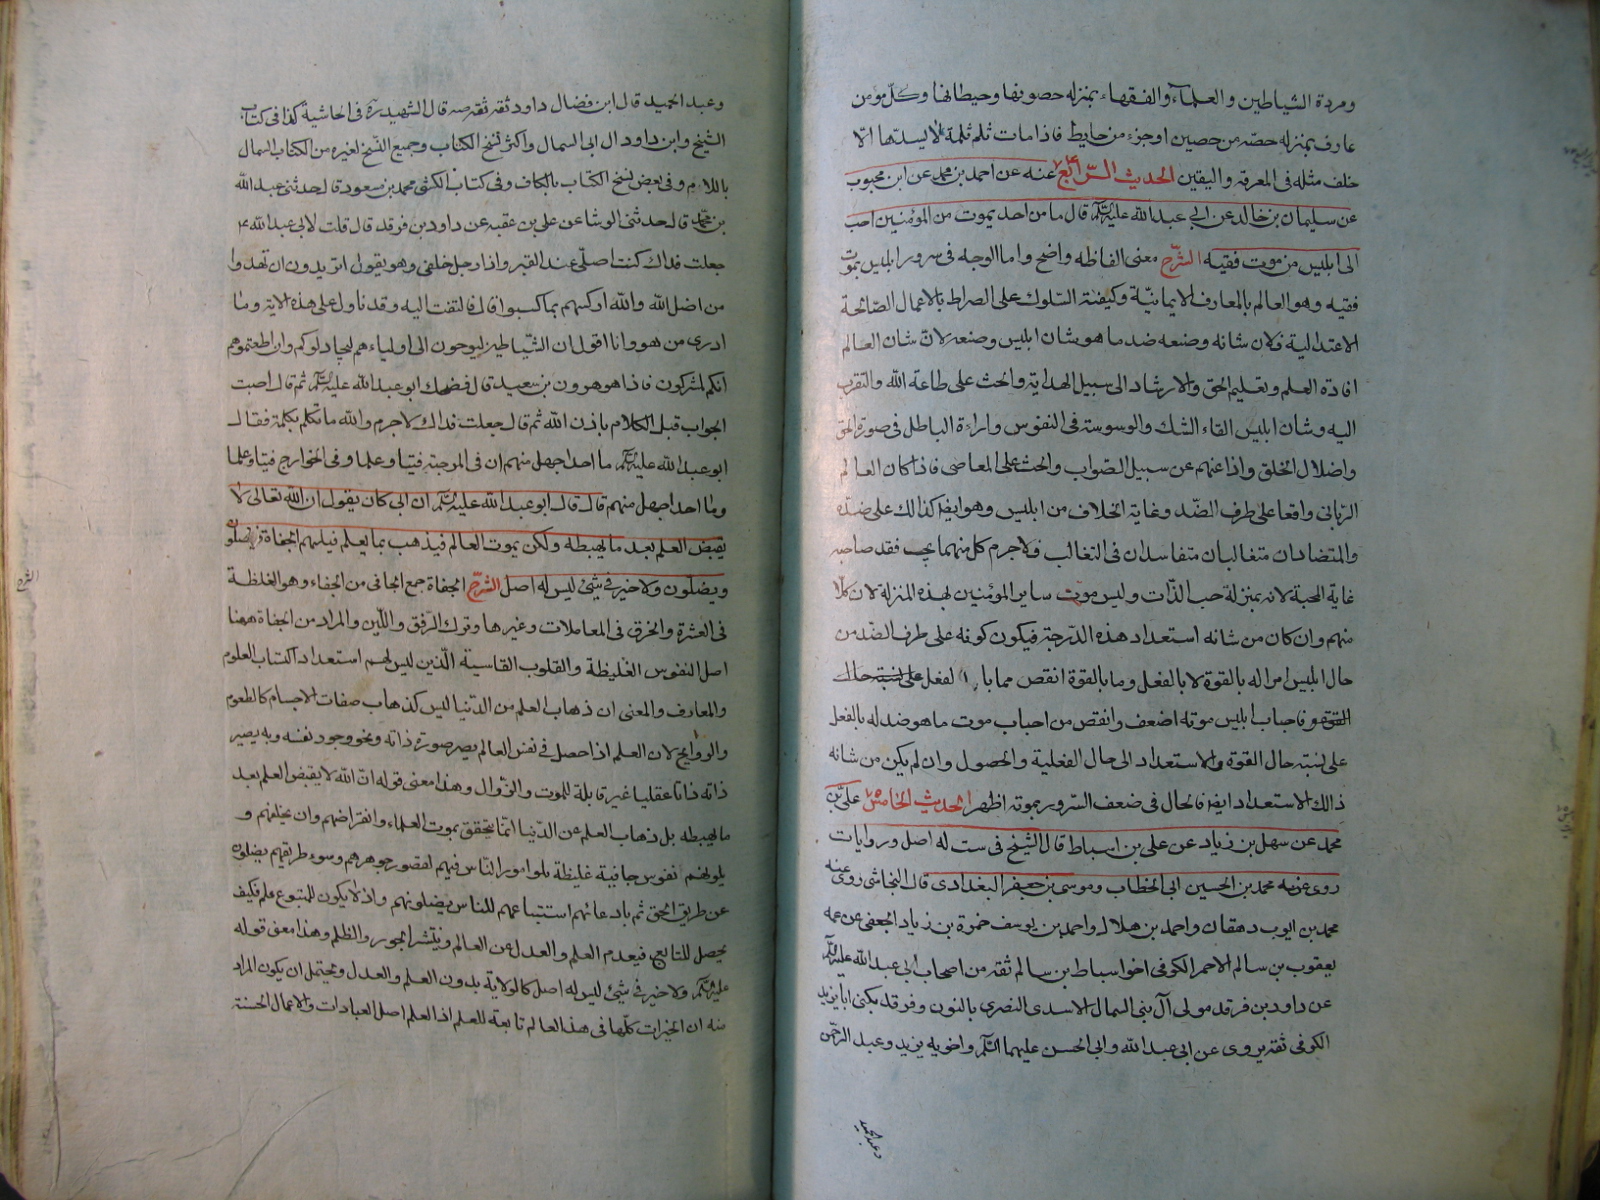 ومردة الشياطين والعلماء والفقهاء بمنزله حصونها وحيطانها وكل مومن
عارف بمنزله حصّه من حصين اوجزء من حايط فاذا مات ثلم ثلمة لا يسدها الا
خلف مثله فى المعرفة واليقين الحديث الرّابع عنه عن احمد بن محمد عن ابن محبوب
عن سليمان بن خالد عن ابي عبد الله عليه السلم قال ما من احد يموت من المؤمنين احب
الى ابليس من موت فقيه الشرح معنى الفاظه واضح واما الوجه فى سرور ابليس بموت
فقيه وهو العالم بالمعارف الايمانيّة وكيفية السّلوك على الصراط بالاعمال الصّالحة
الاعتدالية فلان شانه وصنعه ضد ما هو شان ابليس وصنعه لان شان العالم
افادة العلم وتعليم الحق والارشاد الى سبيل الهداية والحث على طاعة الله والتقرب
اليه وشان ابليس القاء الشك والوسوسة فى النفوس واراءة الباطل فى صورة الحق
واضلال الخلق واذاعتهم عن سبيل الصواب والحث على المعاصى فاذا كان العالم
الربانى واقعا على طرف الضّد وغاية الخلاف من ابليس وهو ايضا كذلك على ضدّه
والمتضادان متغالبان متفاسدان فى التغالب ولاجرم كل منهما يحب فقد صاحبه
غاية المحبة لانه بمنزلة حب الذّات وليس موت ساير المؤمنين لهذه المنزلة لان كلا
منهم وان كان من شانه استعداد هذه الدّرجة فيكون كونه على طرف الضّد من
حال ابليس امر اله بالقوة لا بالفعل وما بالقوة انقص مما بالفعل على نسبة حال
القوة فاحباب ابليس موته اضعف وانقص من احباب موت ما هو ضد له بالفعل
على نسبة حال القوة والاستعداد الى حال الفعلية والحصول وان لم يكن من شانه
ذالك الاستعداد ايضا فالحال فى ضعف السّرور بموته اظهر الحديث الخامس على بن
محمد عن سهل بن زياد عن على بن اسباط قال الشيخ فى ست له اصل وروايات
روى عنه محمد بن الحسين ابى الخطاب وموسى بن جعفر البغدادى قال النجاشى روى عنه
محمد بن ايوب دهقان واحمد بن هلال واحمد بن يوسف حمزة بن زياد الجعفى عن عمه
يعقوب بن سالم الاحمر الكوفى اخو اسباط بن سالم ثقة من اصحاب ابى عبد الله عليه السلم
عن داود بن فرقد مولى آل بنى السمال الاسدى النصرى بالنون وفرقد يكنى ابا يزيد
الكوفى ثقة يروى عن ابى عبد الله وابى الحسن عليهما السّلم واخويه يزيد وعبد الرحمن
وعبد الحميد
وعبد الحميد قال ابن فضال داود ثقة ثقة صه قال الشهيد ره فى الحاشية كذا فى كتاب
الشيخ وابن داود ال ابى السمال واكثر نسخ الكتاب وجميع النّسخ لغيره من الكتاب السمال
باللام وفى بعض نسخ الكتاب بالكاف وفى كتاب الكشى محمد بن مسعود قال حدثنى عبد الله
بن محمد قال حدثنى الوشا عن على بن عقبه عن داود بن فرقد قال قلت لابى عبد الله ع
جعلت فداك كنت اصلّى عند القبر واذا رجل خلفى وهو يقول اتريدون ان تهدوا
من اضل الله والله اركسهم بما كسبوا قال فالتفت اليه وقد تاول على هذه الاية وما
ادرى من هو وانا اقول ان الشّياطين ليوحون الى اولياءهم ليجادلوكم وان اطعتموهم
انكم لمشركون فاذا هو هرون بن سعيد قال فضحك ابو عبد الله عليه السلم ثم قال اصبت
الجواب قبل الكلام باذن الله ثم قال جعلت فداك لاجرم والله ما تكلم بكلمة فقال
ابو عبد الله عليه السلم ما احد اجهل منهم ان فى المرجئة فتيا وعلما وفى الخوارج فتيا وعلما
وما احد اجهل منهم قال قال ابو عبد الله عليه السلم ان ابى كان يقول ان الله تعالى لا
يقبض العلم بعد ما يهبطه ولكن يموت العالم فيذهب بما يعلم فيليهم الجفاة فيضلون
ويضلّون ولا خير فى شئ ليس له اصل الشرح الجفاة جمع الجافى من الجفاء وهو الغلظة
فى العشرة والخرق فى المعاملات وغيرها وترك الرّفق واللّين والمراد من الجفاة ههنا
اصل النفوس الغليظة والقلوب القاسية الّذين ليس لهم استعداد اكتساب العلوم
والمعارف والمعنى ان ذهاب العلم من الدّنيا ليس كذهاب صفات الاجسام كالطعوم
والروايح لان العلم اذا حصل فى نفس العالم يصر صورة ذاته ونحو وجود نفسه وبه يصير
ذاته ذاتا عقليا غير قابلة للموت والزّوال وهذا معنى قوله انّ الله لا يقبض العلم بعد
ما يهبطه بل ذهاب العلم عن الدّنيا انّما يتحقق بموت العلماء وانقراضهم وان يخلفهم و
يلونهم نفوس جافية غليظة يلوا امور النّاس فيهم لقصور جوهرهم وسوء طريقهم يضلون
عن طريق الحق ثم بادعائهم استتباعهم للناس يضلونهم واذ لا يكون للمتبوع علم فكيف
يحصل للتابع فيعدم العلم والعدل عن العالم وينتشر الجور والظلم وهذا معنى قوله
عليه السلم ولا خير فى شئ ليس له اصل كالولاية بدون العلم والعدل ويحتمل ان يكون المراد
منه ان الخيرات كلّها فى هذا العالم تابعة للعلم اذ العلم اصل العبادات والاعمال الحسنة